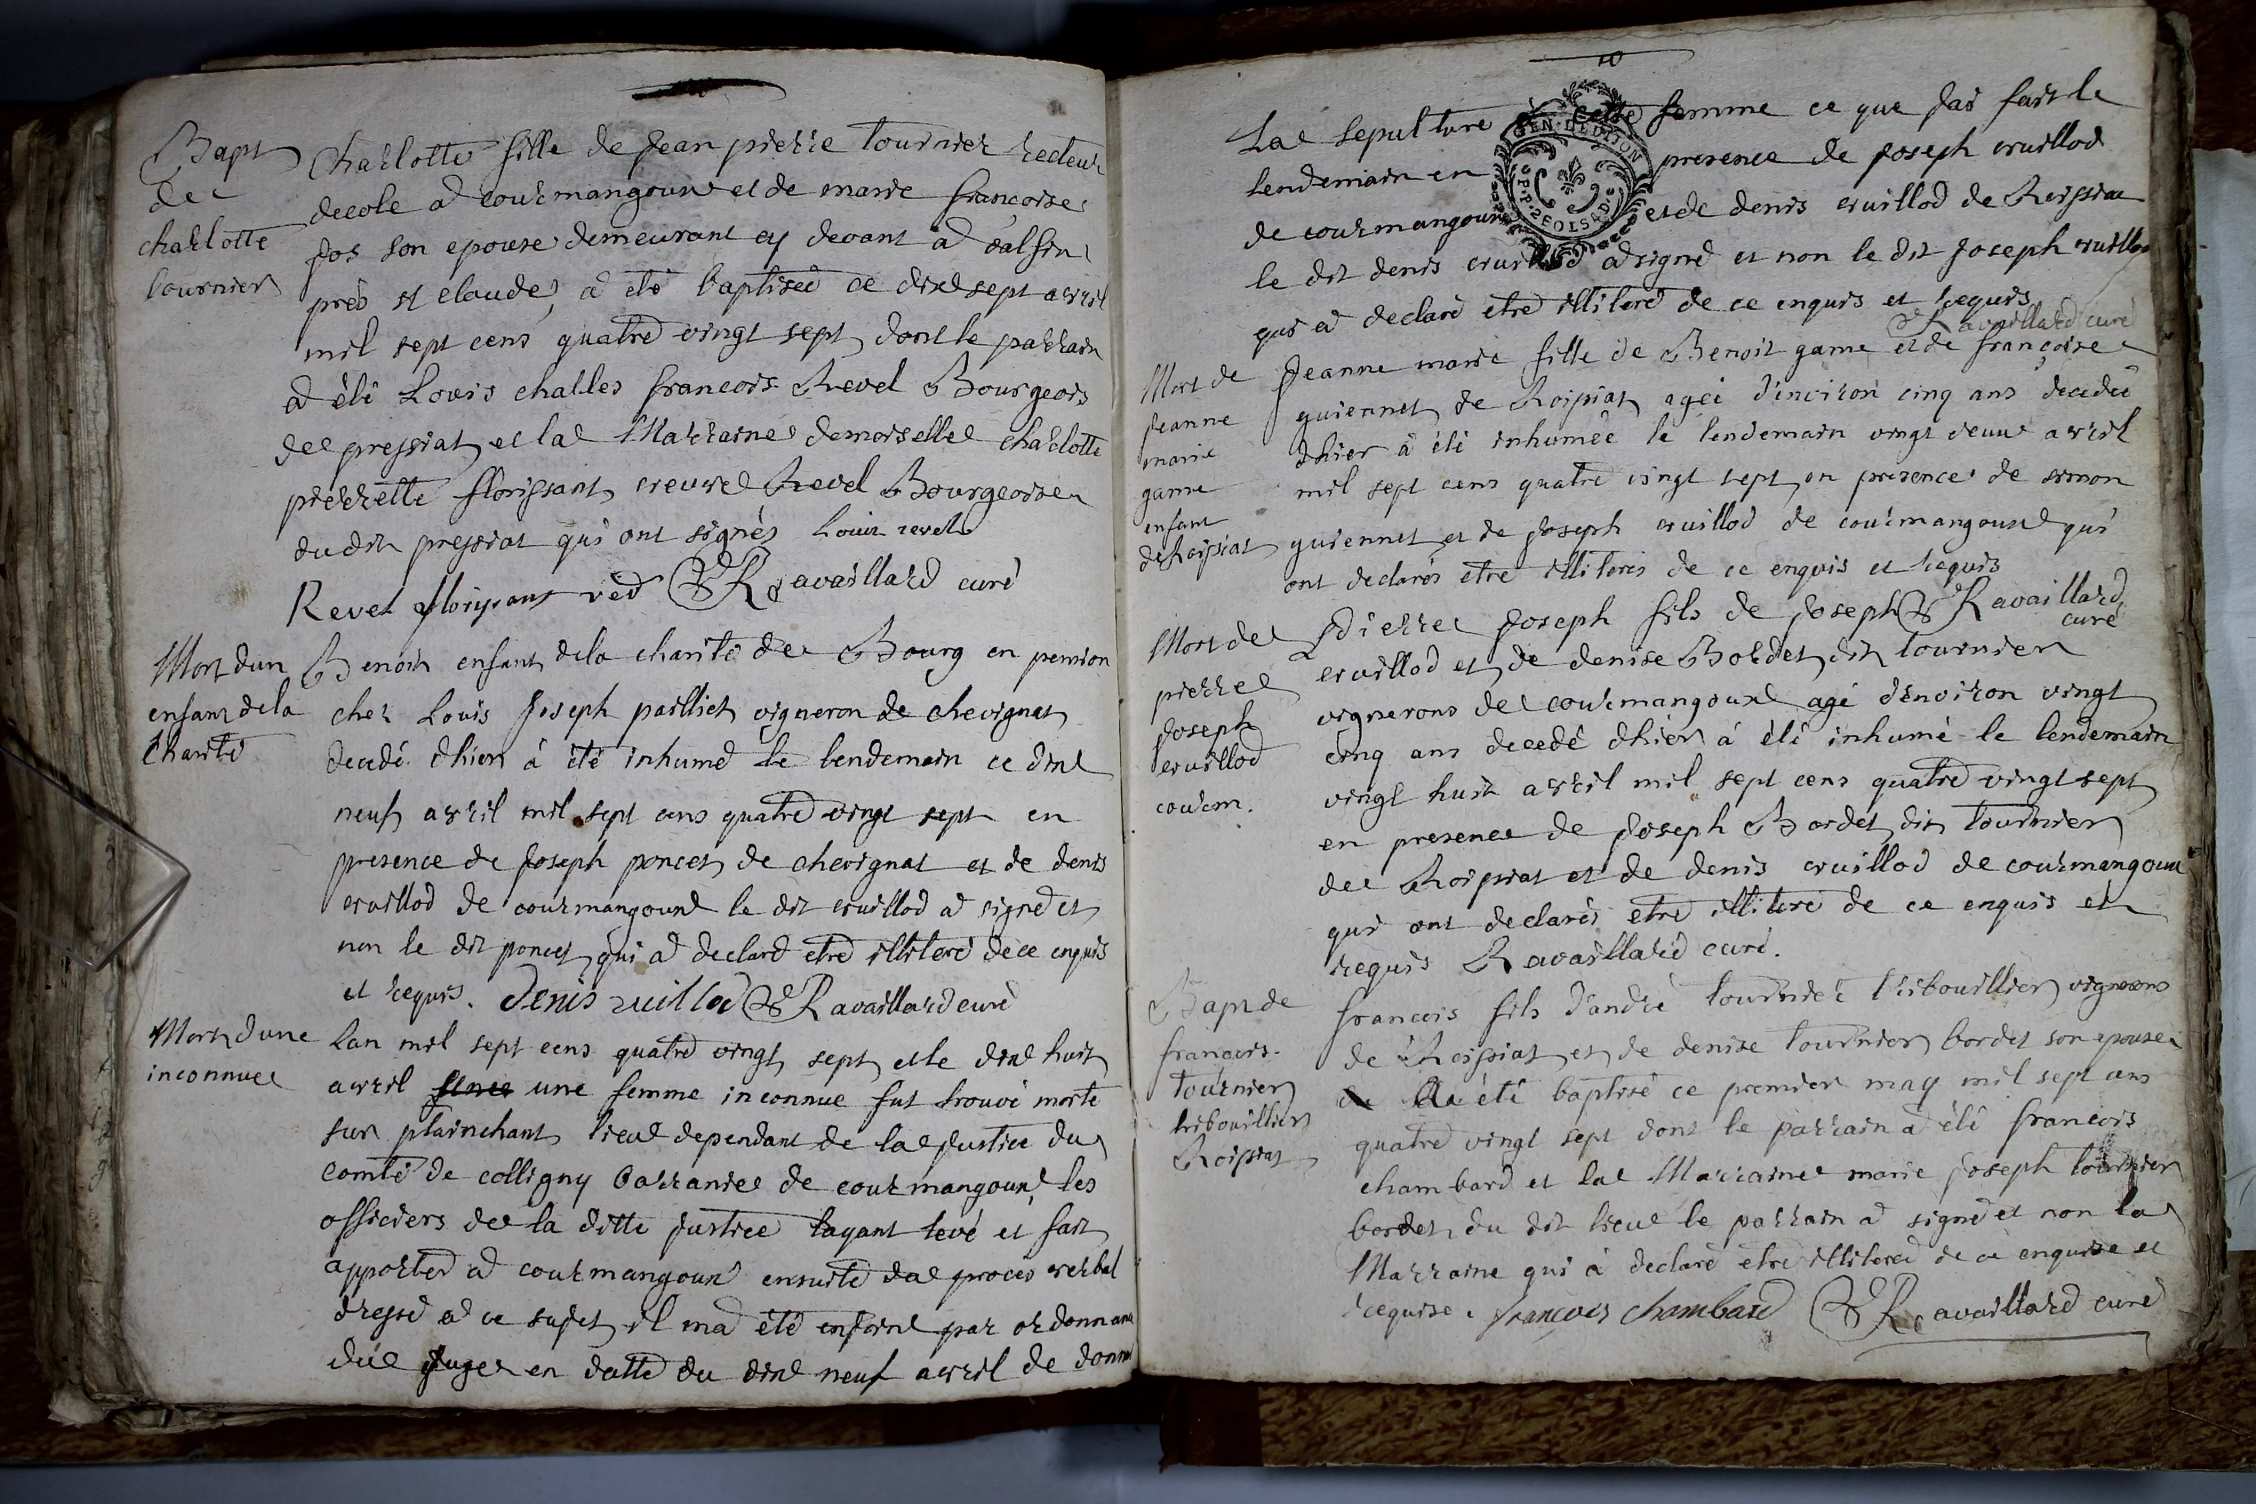 Bapt
de
charlotte
tournier
charlotte fille de Jean pierre tournier recteur
decole a courmangoux et de marie francoise
Jos son epouse demeurant cy devant a dalfin
près st claude, a été baptisée ce dixsept avril
mil sept cens quatre vingt sept dont le parrain
a été Louis charles francois Revel Bourgeois
de pressiat et la Marraine demoiselle charlotte
pierrette florissant veuve Revel Bourgeoise
du dit pressiat qui ont signés Louis revel
Revel florissant Ravaillard curé
Mort dun
enfant de la
charité
Benoit enfant de la charité de Bourg en pension
chez Louis Joseph pailliet vigneron de chevignat
decedé dhier à été inhumé le lendemain ce dix
neuf avril mil sept cens quatre vingt sept en
presence de Joseph poncet de chevignat et de denis
cruillod de courmangoux le dit cruillod a signé et
non le dit poncet qui a declaré etre illiteré de ce enquis
et requis. Denis cruillod Ravaillard curé
Mort dune
inconnue
Lan mil sept cens quatre vingt sept et le dix huit
avril une femme inconnue fut trouvé morte
sur plainchant lieu dependant de la Justice du
comté de colligny barranie de courmangoux les
officiers de la ditte Justice layant levé et fait
apporter a courmangoux ensuite du procès verbal
dressé a ce sujet il ma été enjoint par ordonnance
du Juge en datte du dix neuf avril de donner
10
La sepulture à cette femme ce que Jai fait le
lendemain en presence de Joseph cruillod
GEN. DE DIJON
P.P. 2 FOIS 4 D.
de courmangoux et de denis cruillod de Roissiat
le dit denis cruillod a signé et non le dit Joseph cruillod
qui a declaré etre illiteré de ce enquis et requis
Ravaillard curé
Mort de
Jeanne
marie
game
enfant
de Roissiat
Jeanne marie fille de Benoit game et de françoise
guiennet de Roissiat agéé d'environ cinq ans decedée
dhier à été inhumée le lendemain vingt deux avril
mil sept cens quatre vingt sept en presence de simon
guiennet et de Joseph cruillod de courmangoux qui
ont declarés etre illiterés de ce enquis et requis
Ravaillard
curé
Mort de
pierre
Joseph
cruillod
courm.
Pierre Joseph fils de Joseph
cruillod et de denise Bordet dit tournier
vignerons de courmangoux agé d'environ vingt
cinq ans decedé dhier à été inhumé le lendemain
vingt huit avril mil sept cens quatre vingt sept
en presence de Joseph Bordet dit tournier
de Roissiat et de denis cruillod de courmangoux
qui ont declarés etre illiteré de ce enquis et
requis Ravaillard curé.
Bapt de
francois
tournier
tribouillier
Roissiat
francois fils d'andré tournier tribouillier vignerons
de Roissiat et de denise tournier bordet son epouse
a été baptisé ce premier may mil sept cens
quatre vingt sept dont le parrain a été francois
chambard et la Marraine marie Joseph tournier
bordet du dit lieu le parrain a signé et non la
Marraine qui à declaré etre illiteré de ce enquise et
requise. françois chambard Ravaillard curé